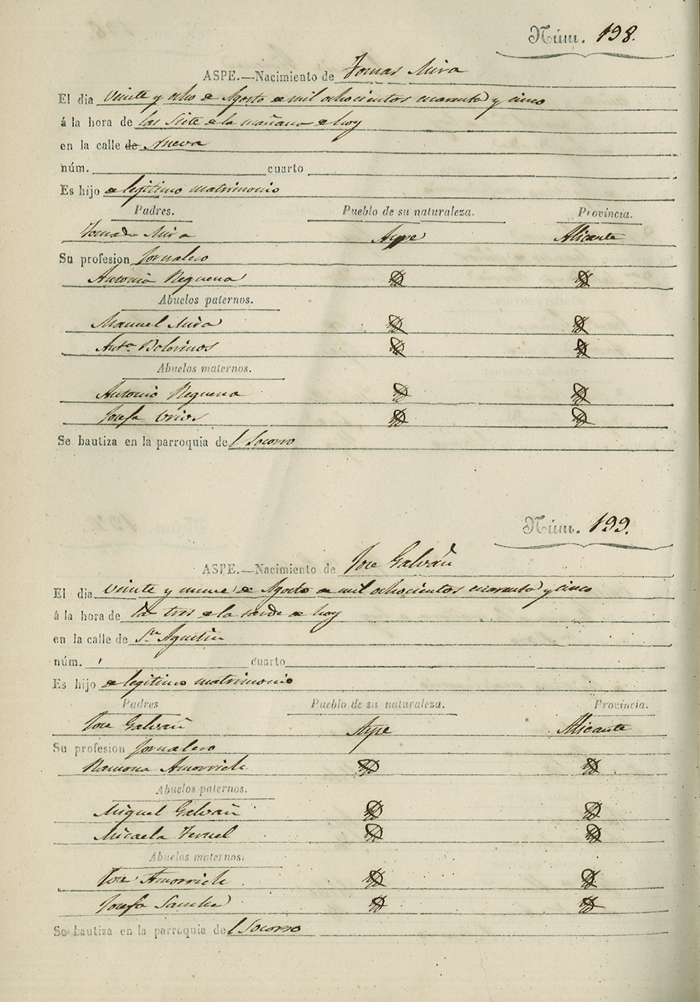 Núm. 198.
ASPE.—Nacimiento de Tomas Mira
El dia veinte y ocho de Agosto de mil ochocientos cuarenta y cinco
á la hora de las siete de la mañana de hoy
en la calle de Nueva
núm. cuarto
Es hijo de legitimo matrimonio
Padres. Pueblo de su naturaleza. Provincia.
Tomas Mira Aspe Alicante
Su profesion Jornalero
Antonia Requena
Abuelos paternos.
Manuel Mira
Anta. Bolvinos
Abuelos maternos.
Antonio Requena
Josefa
Se bautiza en la parroquia del Socorro
Núm. 199.
ASPE.—Nacimiento de Jose Galván
El dia veinte y nueve de Agosto de mil ochocientos cuarenta y cinco
á la hora de las tres de la tarde de hoy
en la calle de Sn. Agustin
núm. cuarto
Es hijo de legitimo matrimonio
Padres Pueblo de su naturaleza. Provincia.
Jose Galváñ Aspe Alicante
Su profesion Jornalero
Ramona
Abuelos paternos.
Miguel Galváñ
Micaela Teruel
Abuelos maternos.
Jose
Josefa Sanchez
Se bautiza en la parroquia del Socorro